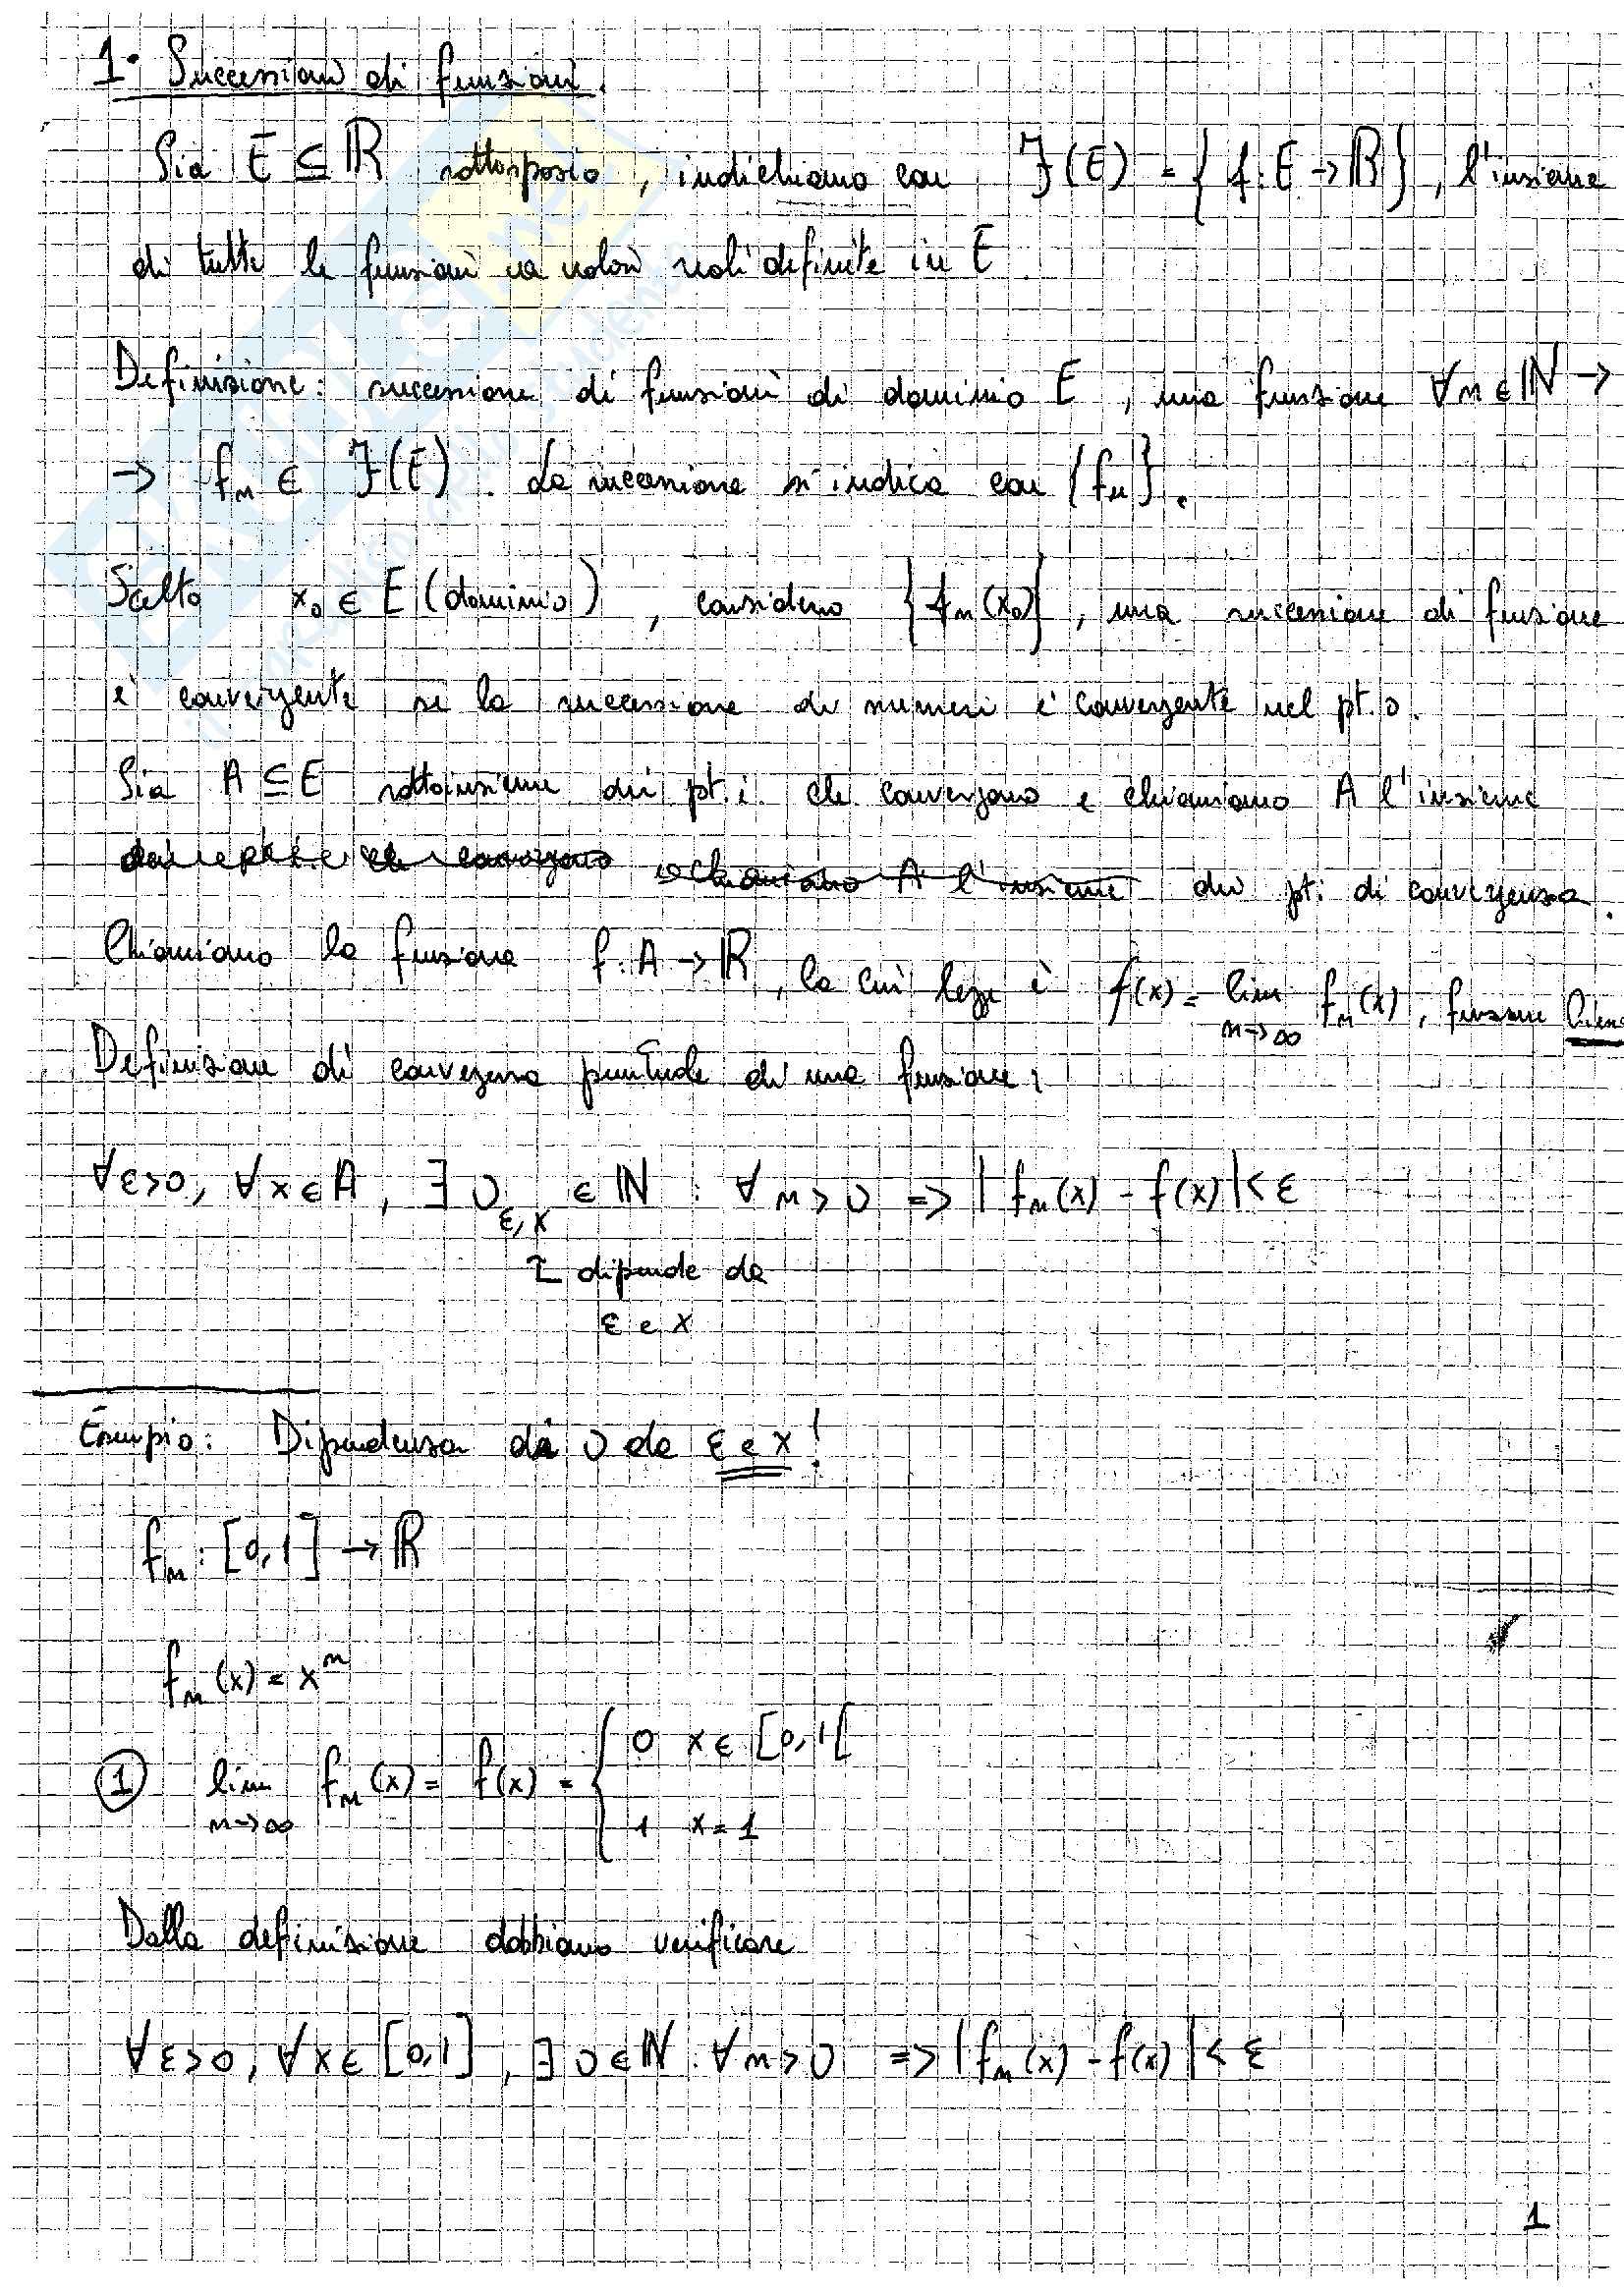 1. Successioni di funzioni.
Sia E ⊆ ℝ sottospazio, indichiamo con ℱ(E) = {f: E → ℝ}, l'insieme
di tutte le funzioni a valori reali definite in E
Definizione: successione di funzioni di dominio E, una funzione ∀n ∈ ℕ →
→ fₙ ∈ ℱ(E). La successione si indica con {fₙ}.
Scelto x₀ ∈ E (dominio), considero {fₙ(x₀)}, una successione di funzione
è convergente se la successione di numeri è convergente nel pt.o.
Sia A ⊆ E sottoinsieme dei pt.i che convergono e chiamiamo A l'insieme
che convergono e chiamiamo A l'insieme dei pt.i di convergenza.
Chiamiamo la funzione f: A → ℝ, la cui legge è f(x) = lim n→∞ fₙ(x), funzione
Definizione di convergenza puntuale di una funzione:
∀ε>0, ∀x∈A, ∃ υ_ε,x ∈ ℕ : ∀n > υ => |fₙ(x) - f(x)| < ε
dipende da
ε e x
Esempio: Dipendenza di υ da ε e x!
fₙ: [0,1] → ℝ
fₙ(x) = xⁿ
① lim n→∞ fₙ(x) = f(x) = { 0 x ∈ [0,1[
1 x = 1
Dalla definizione dobbiamo verificare
∀ε>0, ∀x∈[0,1], ∃ υ∈ℕ : ∀n > υ => |fₙ(x) - f(x)| < ε
1